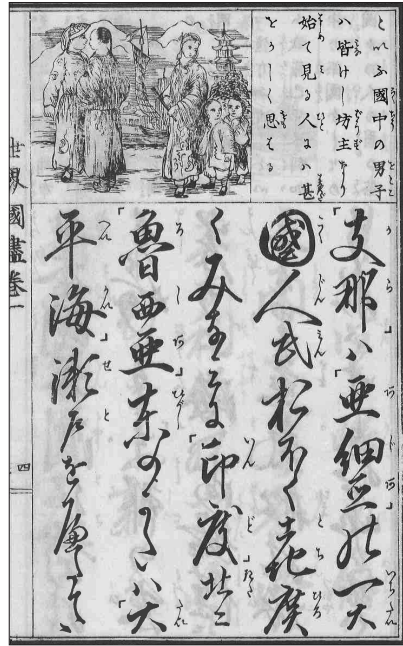 といふ國中の男子
ハ皆けし坊主なり
始て見る人にハ甚
をかしく思はる
「支那」ハ「亜細亜」の一大
國人民おほく土地廣
くみなみに「印度」北に
「魯西亜」東のかたハ「大
平海」瀬戸を隔てゝ
世界國盡卷一
四